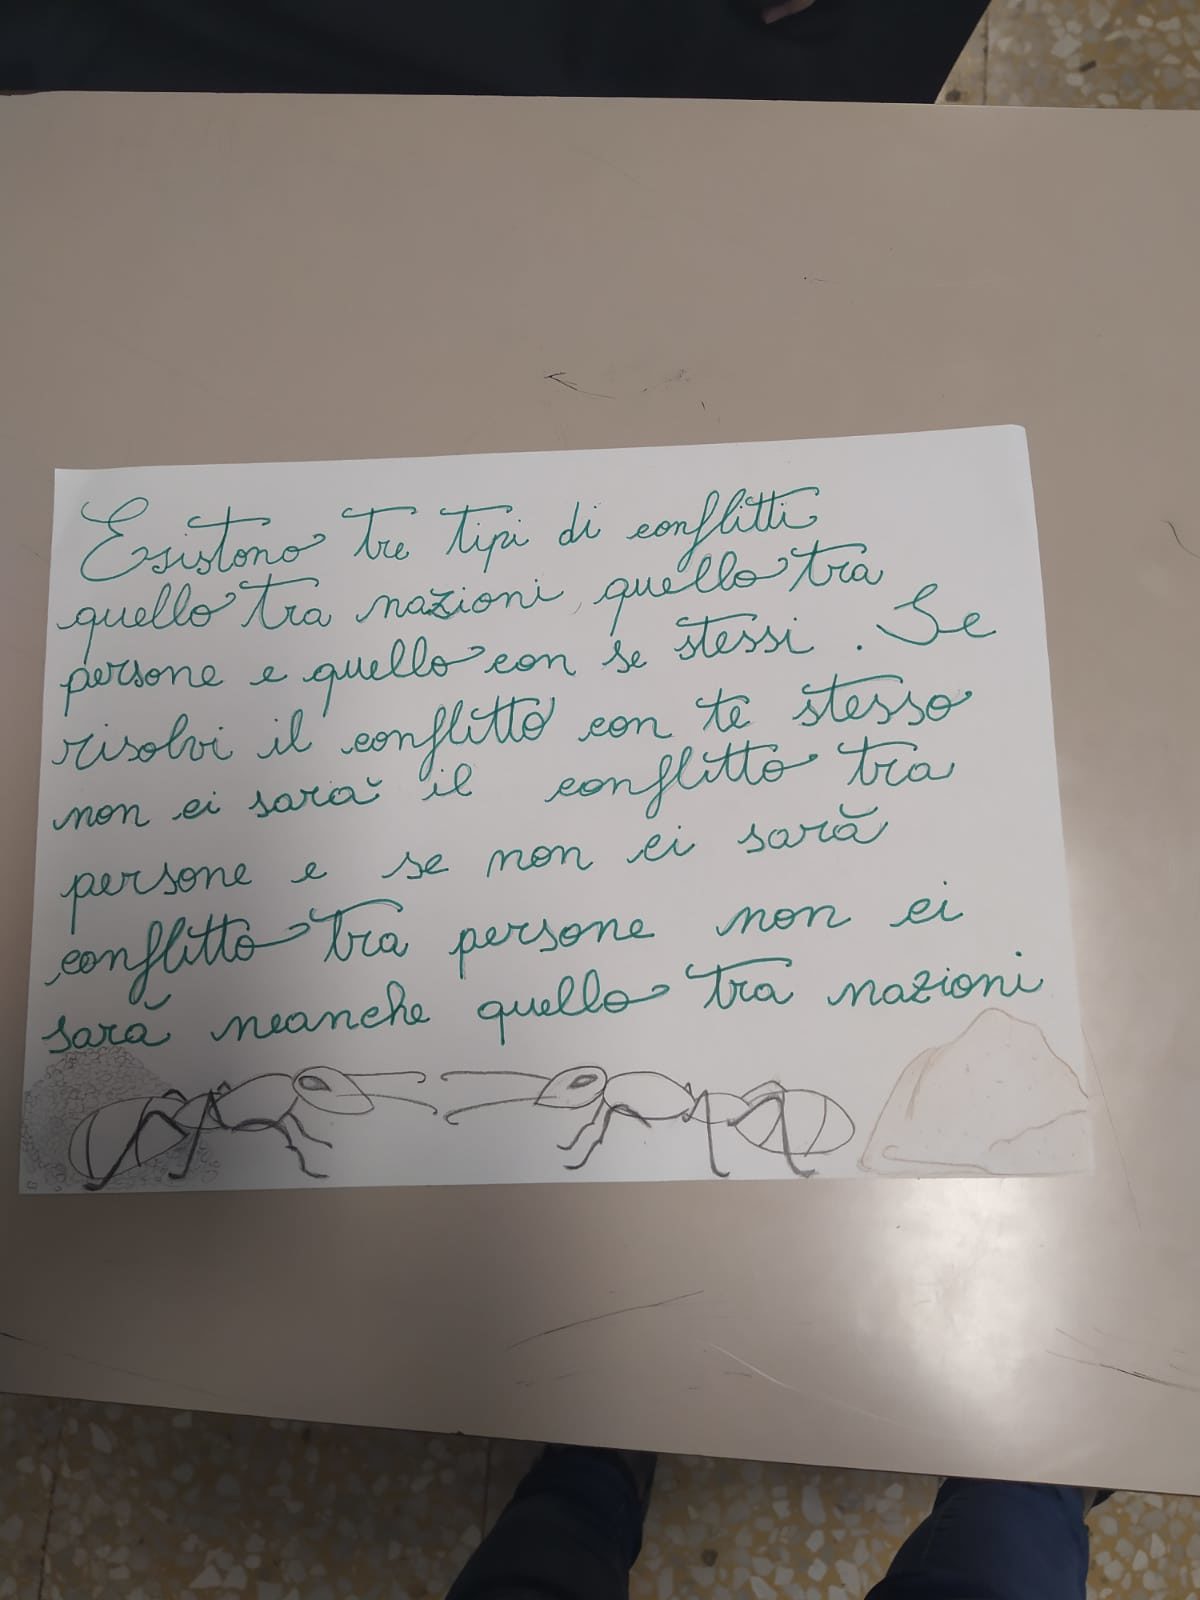 Esistono tre tipi di conflitti
quello tra nazioni, quello tra
persone e quello con se stessi. Se
risolvi il conflitto con te stesso
non ci sarà il conflitto tra
persone e se non ci sarà
conflitto tra persone non ci
sarà neanche quello tra nazioni